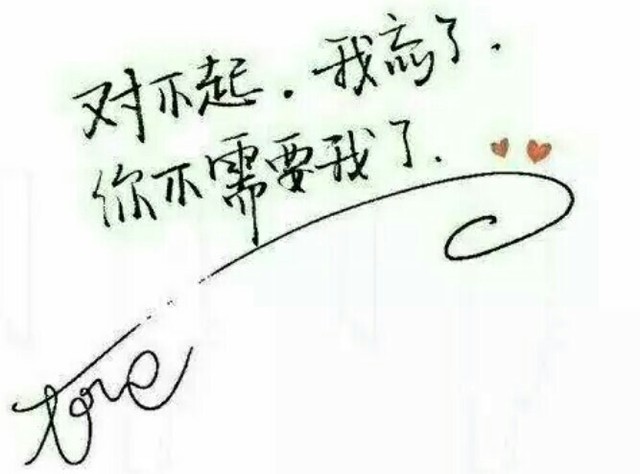 对不起.我忘了.
你不需要我了.
love